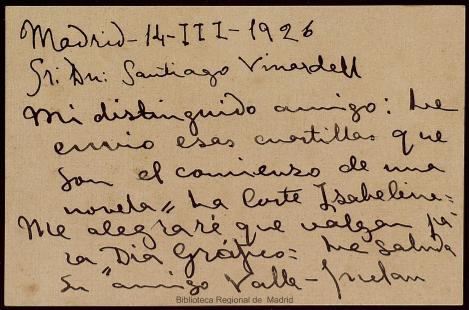 Madrid-14-III-1926
Sr: Dn: Santiago Vinardell
Mi distinguido amigo: Le
envio esas cuartillas que
son el comienzo de una
novela "La Corte Isabelina"
Me alegraré que valgan pa
ra Dia Gráfico= Le saluda
su amigo Valle-Inclan
Biblioteca Regional de Madrid